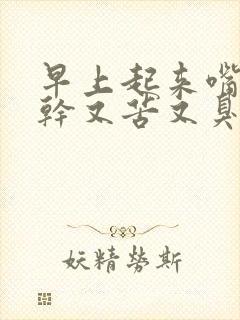 早上起来嘴
幹又苦又臭
妖精勞斯